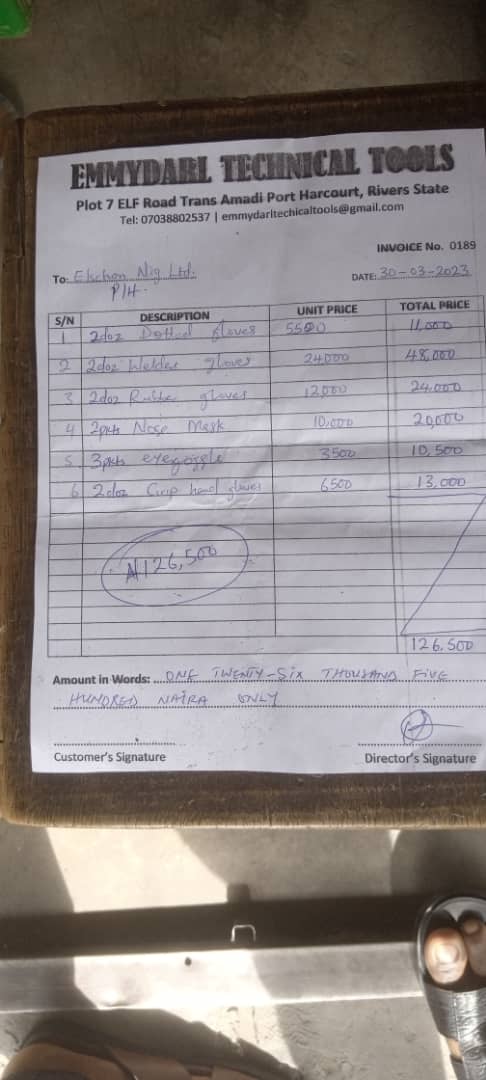 EMMYDARL TECHNICAL TOOLS
Plot 7 ELF Road Trans Amadi Port Harcourt, Rivers State
Tel: 07038802537 | emmydarltechicaltools@gmail.com
INVOICE No. 0189
To: Nig Ltd. DATE: 30-03-2023
P/H.
S/N DESCRIPTION UNIT PRICE TOTAL PRICE
1 2doz Dotted gloves 5500 11,000
2 2doz Welder gloves 24000 48,000
3 2doz gloves 12000 24,000
4 2pkts Nose Mask 10,000 20,000
5 3pkts 3500 10,500
6 2doz Grip hand gloves 6500 13,000
₦126,500
126,500
Amount in Words: ONE TWENTY-SIX THOUSAND FIVE
HUNDRED NAIRA ONLY
Customer's Signature Director's Signature